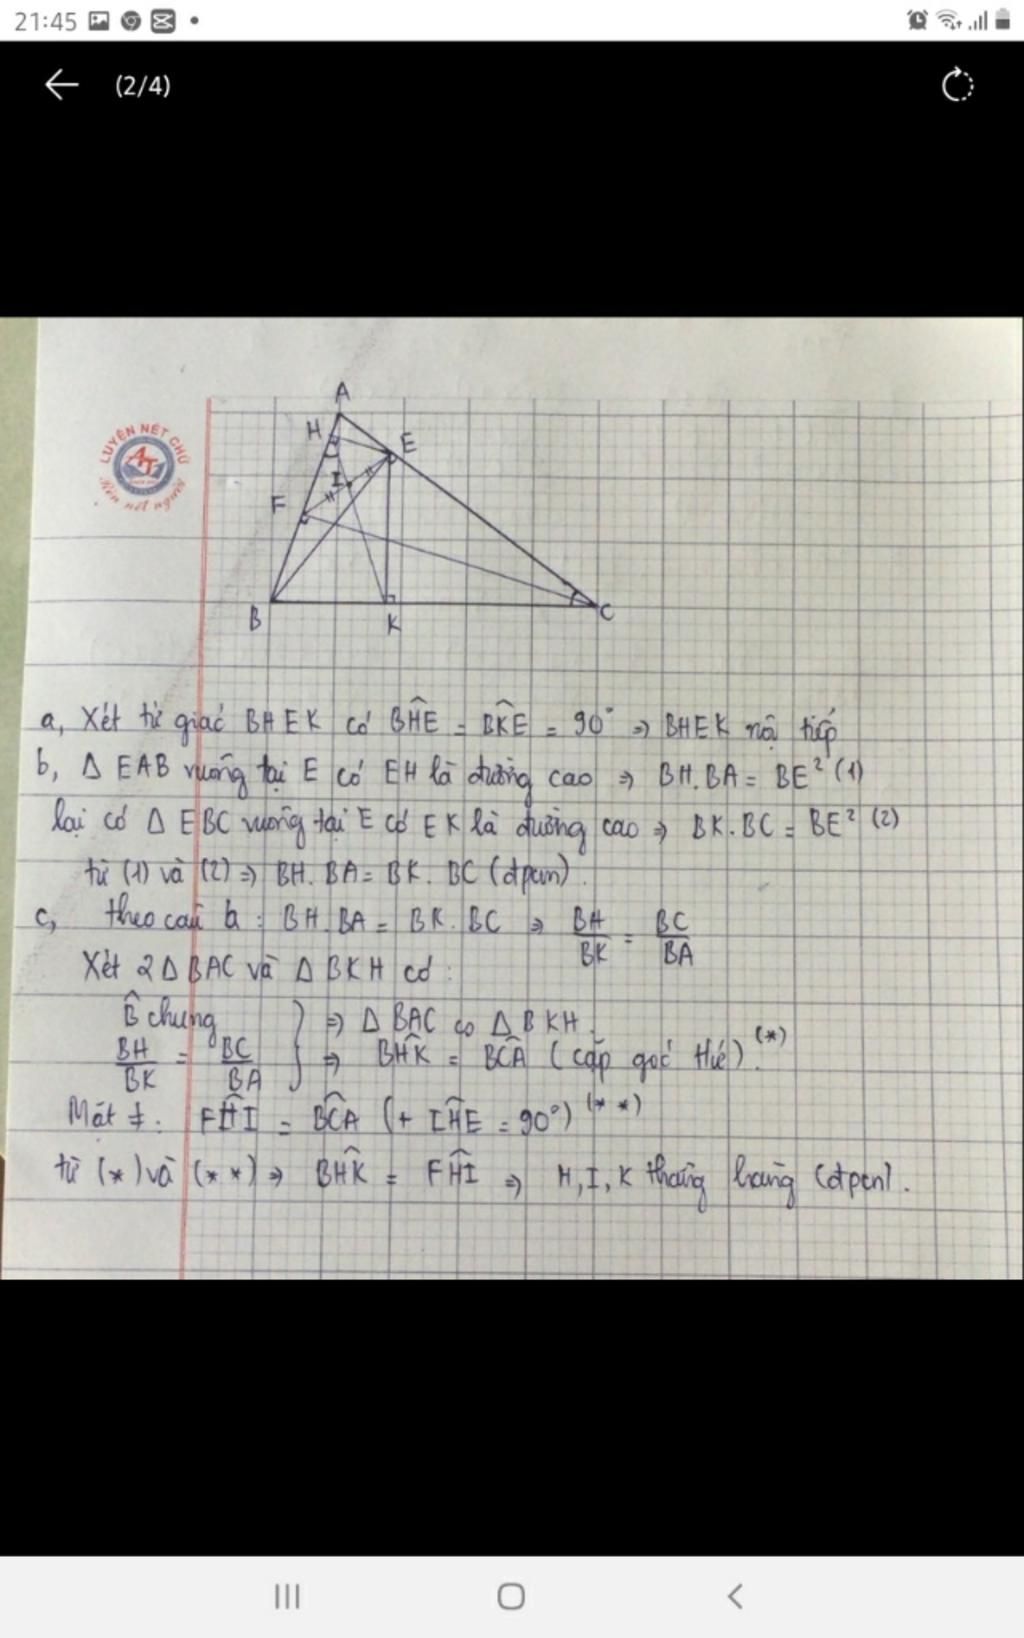 21:45
(2/4)
A
H
E
I
F
B
K
C
LUYỆN NÉT CHỮ
AT
Rèn nết người
a, Xét tứ giác BHEK có BĤE = BK̂E = 90° => BHEK nội tiếp
b, Δ EAB vuông tại E có EH là đường cao => BH.BA = BE² (1)
lại có Δ EBC vuông tại E có EK là đường cao => BK.BC = BE² (2)
từ (1) và (2) => BH.BA = BK.BC (đpcm).
c, theo câu b : BH.BA = BK.BC => BH/BK = BC/BA
Xét 2Δ BAC và Δ BKH có :
B̂ chung } => Δ BAC ∽ Δ BKH.
BH/BK = BC/BA } => BĤK = BĈA (cặp góc t/ứ). (*)
Mặt ≠ : FĤI = BĈA (+ IĤE = 90°) (**)
từ (*) và (**) => BĤK = FĤI => H, I, K thẳng hàng (đpcm).